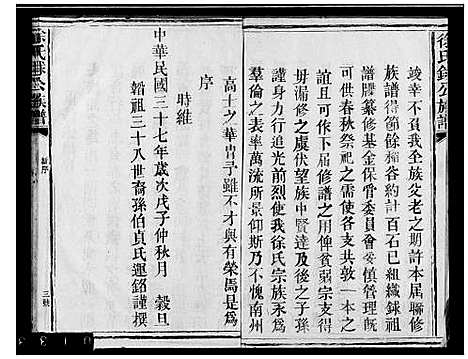 徐氏銶公族譜
竣幸不負我全族父老之期許本屆聯
族譜得節餘稻谷約計百石已組織銶祖
譜牒纂修基金保管委員會妥慎管理既
可供春秋祭祀之需使各支共敦一本之
誼且可作下屆修譜之用俾貧弱宗支得
毋漏修之虞伏望族中賢達及後之子孫
謹身力行追光前烈使我徐氏宗族永爲
羣倫之表率萬流所景仰斯乃不愧南州
高士之華胄予雖不才與有榮焉是爲
序
時維
中華民國三十七年歲次戊子仲秋月 穀旦
韜祖三十八世裔孫伯貞氏運銘謹撰
徐氏銶公族譜
序
三